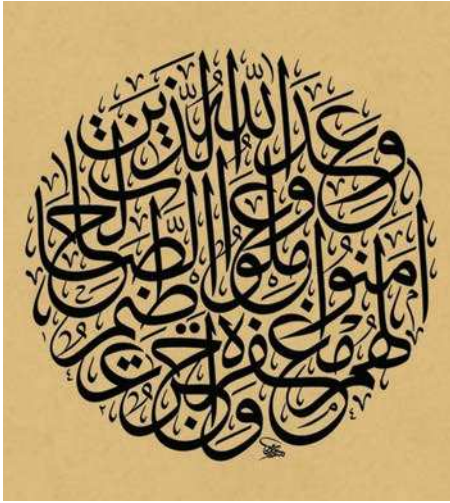 وَعَدَ اللَّهُ الَّذِينَ
اٰمَنُوا وَعَمِلُوا الصَّالِحَاتِ
لَهُمْ مَغْفِرَةٌ وَأَجْرٌ عَظِيمٌ